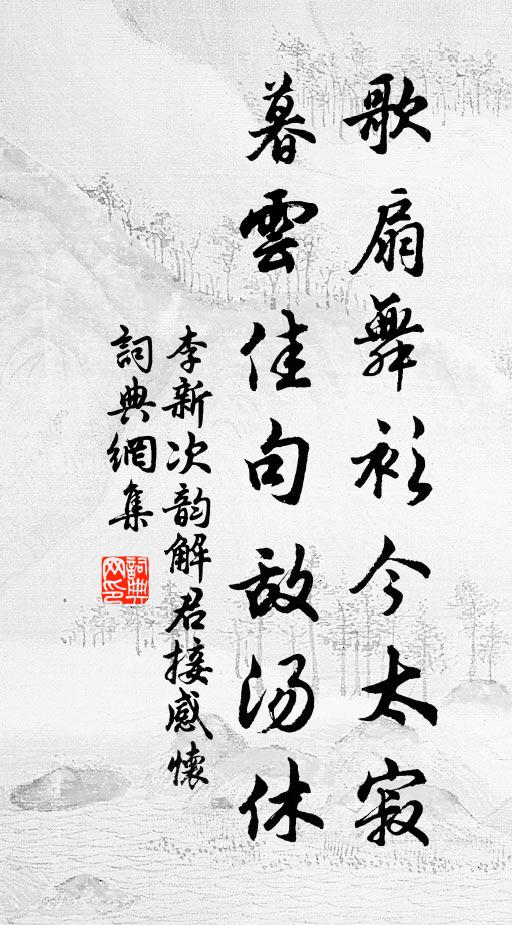 歌扇舞衫今太寂
暮雲佳句敌汤休
李新次韵解君接感懷
詞典網集
詞典网印